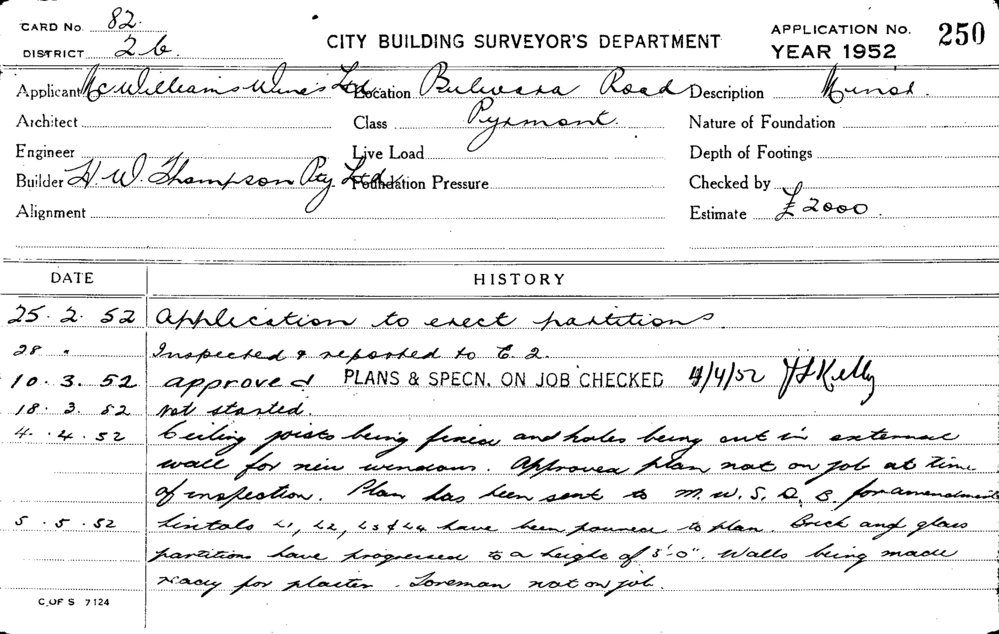 CARD No. 82.
DISTRICT 2b.
CITY BUILDING SURVEYOR'S DEPARTMENT
APPLICATION No. 250
YEAR 1952
Applicant McWilliam's Wines Ltd Location Bulwara Road Description
Architect Class Pyrmont. Nature of Foundation
Engineer Live Load Depth of Footings
Builder H. W. Thompson Pty. Ltd. Foundation Pressure Checked by
Alignment Estimate £2000.
DATE HISTORY
25. 2. 52 Application to erect partitions
28 " Inspected & reported to C. 2.
10. 3. 52 approved PLANS & SPECN. ON JOB CHECKED 4/4/52 Kelly
18. 3. 52 Not started.
4. 4. 52 Ceiling joists being fixed and holes being cut in external
wall for new windows. Approved plan not on job at time
of inspection. Plan has been sent to M. W. S. D. B. for amendments
5. 5. 52 Lintols L1, L2, L3 & L4 have been poured to plan. Brick and glass
partitions have progressed to a height of 3'-0". Walls being made
ready for plaster. Foreman not on job.
C. OF S 7124